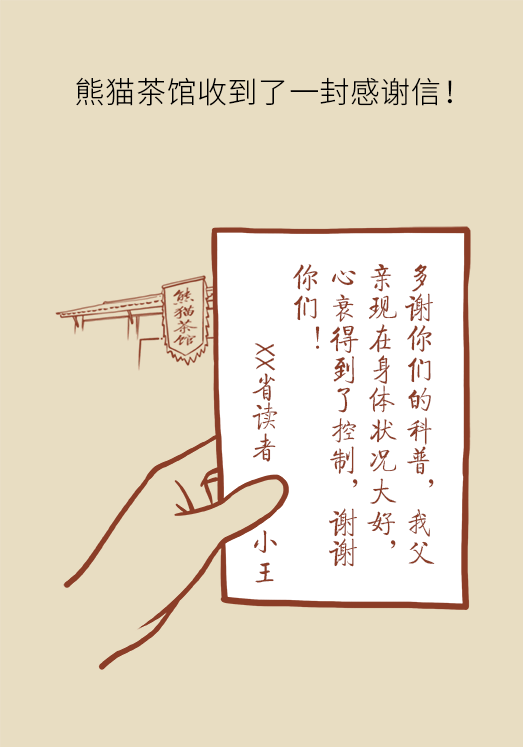 熊猫茶馆收到了一封感谢信！
熊猫茶馆
多谢你们的科普，我父
亲现在身体状况大好，
心衰得到了控制，谢谢
你们！
XX省读者 小王